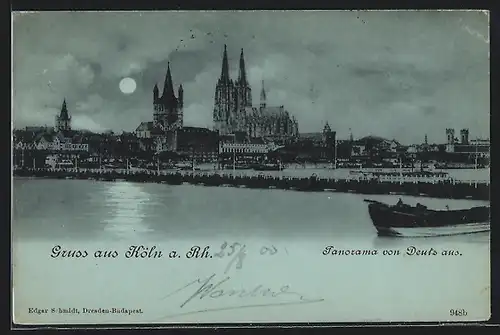 Gruss aus Köln a. Rh. 25/8 00
Panorama von Deutz aus.
Edgar Schmidt, Dresden-Budapest.
948b